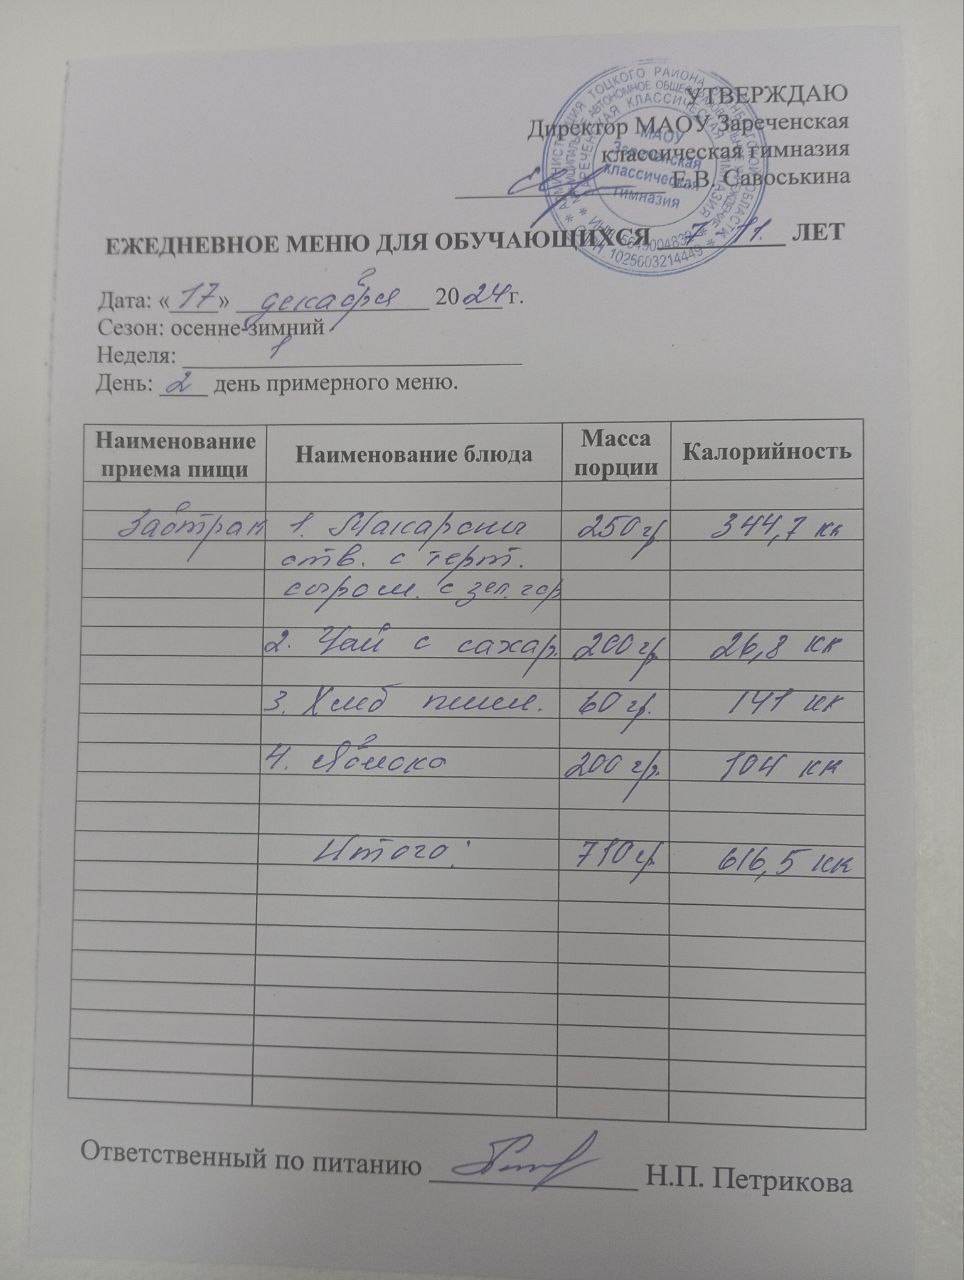 УТВЕРЖДАЮ
Директор МАОУ Зареченская
классическая гимназия
Е.В. Савоськина
АДМИНИСТРАЦИЯ ТОЦКОГО РАЙОНА ОБЛАСТИ
МАОУ
Зареченская
классическая
гимназия
1025603214449
ЕЖЕДНЕВНОЕ МЕНЮ ДЛЯ ОБУЧАЮЩИХСЯ 7-11. ЛЕТ
Дата: «17» декабря 2024 г.
Сезон: осенне-зимний
Неделя: 1
День: 2 день примерного меню.
Наименование приема пищи Наименование блюда Масса порции Калорийность
Завтрак 1. Макароны 250 гр 344,7 кк
отв. с терт.
сыром. с зел. гор
2. Чай с сахар. 200 гр 26,8 кк
3. Хлеб пшен. 60 гр. 141 кк
4. Яблоко 200 гр. 104 кк
Итого: 710 гр. 616,5 кк
Ответственный по питанию Н.П. Петрикова